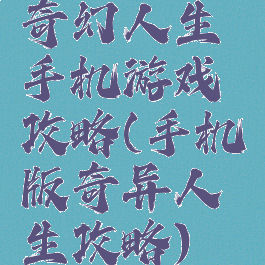 奇幻人生
手机游戏
攻略(手机
版奇异人
生攻略)